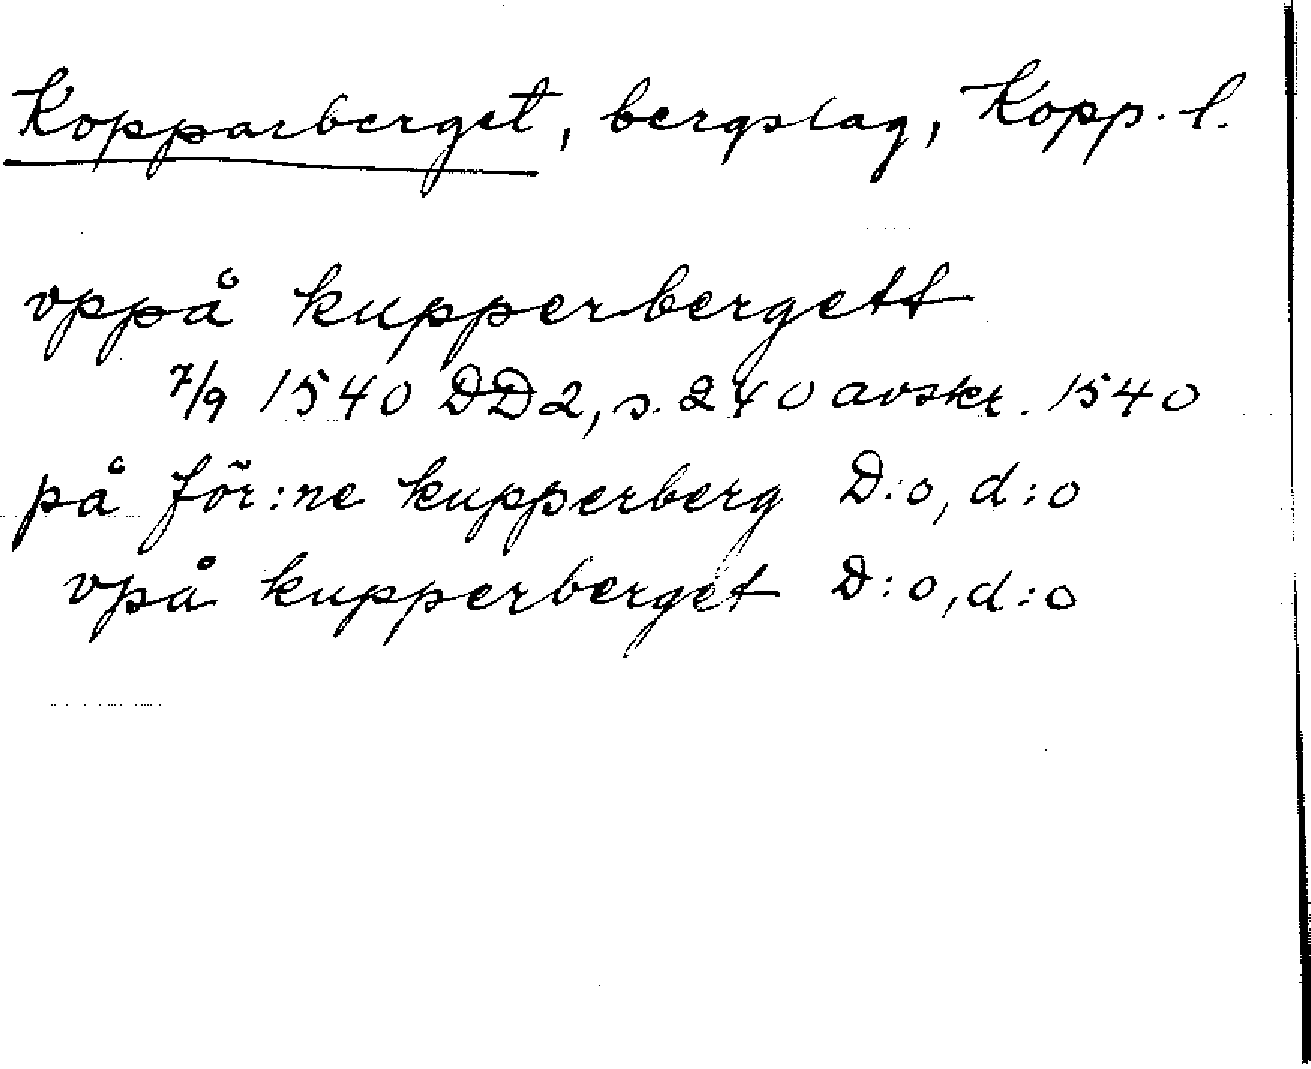 Kopparberget, bergslag, Kopp. l.
vppå kupperbergett
7/9 1540 DD2, s. 240 avskr. 1540
på för:ne kupperberg D:o, d:o
vpå kupperberget D:o, d:o